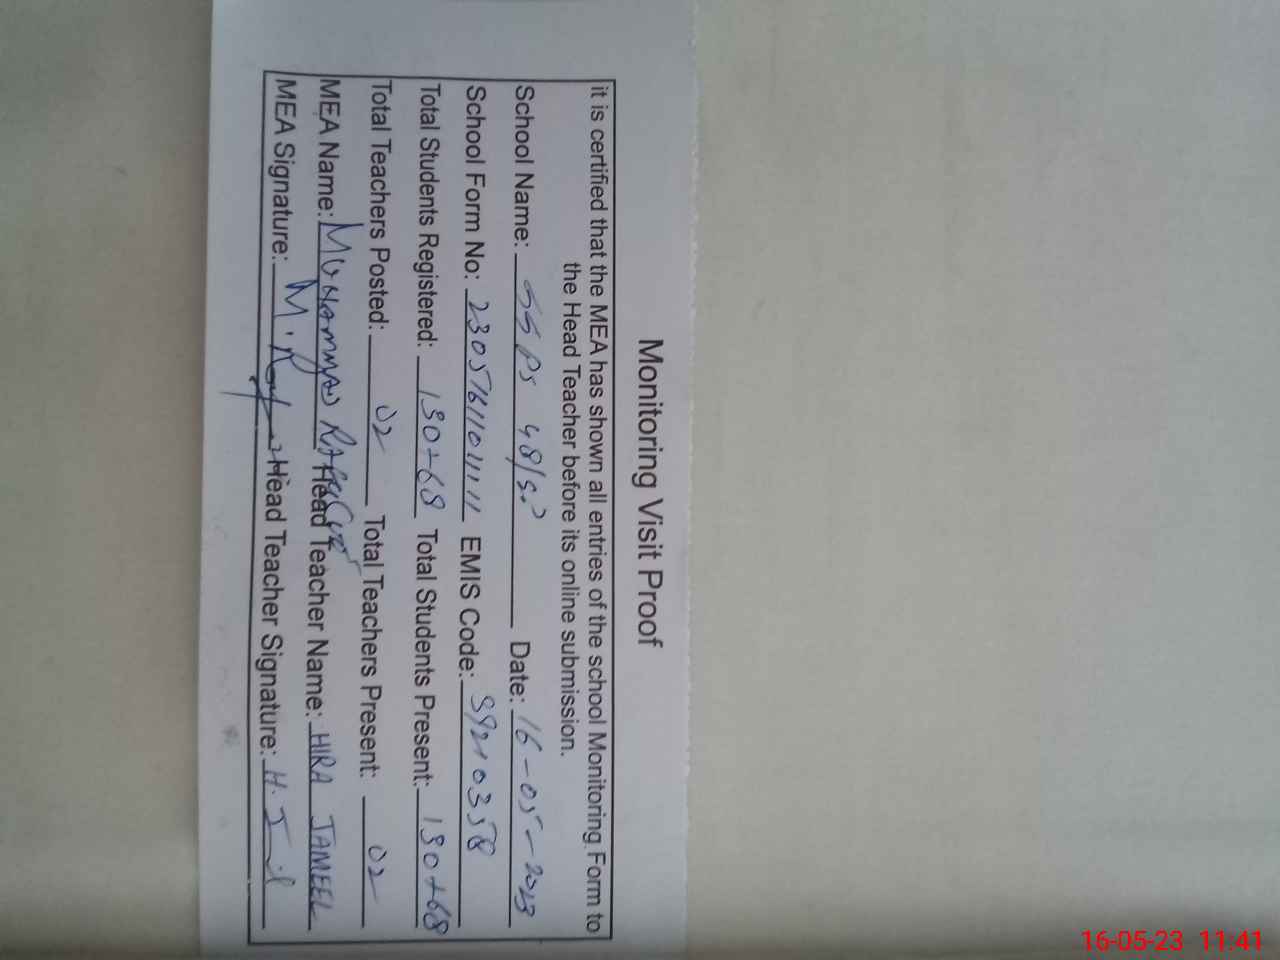 Monitoring Visit Proof
it is certified that the MEA has shown all entries of the school Monitoring Form to
the Head Teacher before its online submission.
School Name: GGPS 48/ Date: 16-05-2023
School Form No: EMIS Code: 39210358
Total Students Registered: 130+68 Total Students Present: 130+68
Total Teachers Posted: 02 Total Teachers Present: 02
MEA Name: MUHAMMAD Head Teacher Name: HIRA JAMEEL
MEA Signature: Head Teacher Signature:
16-05-23 11:41